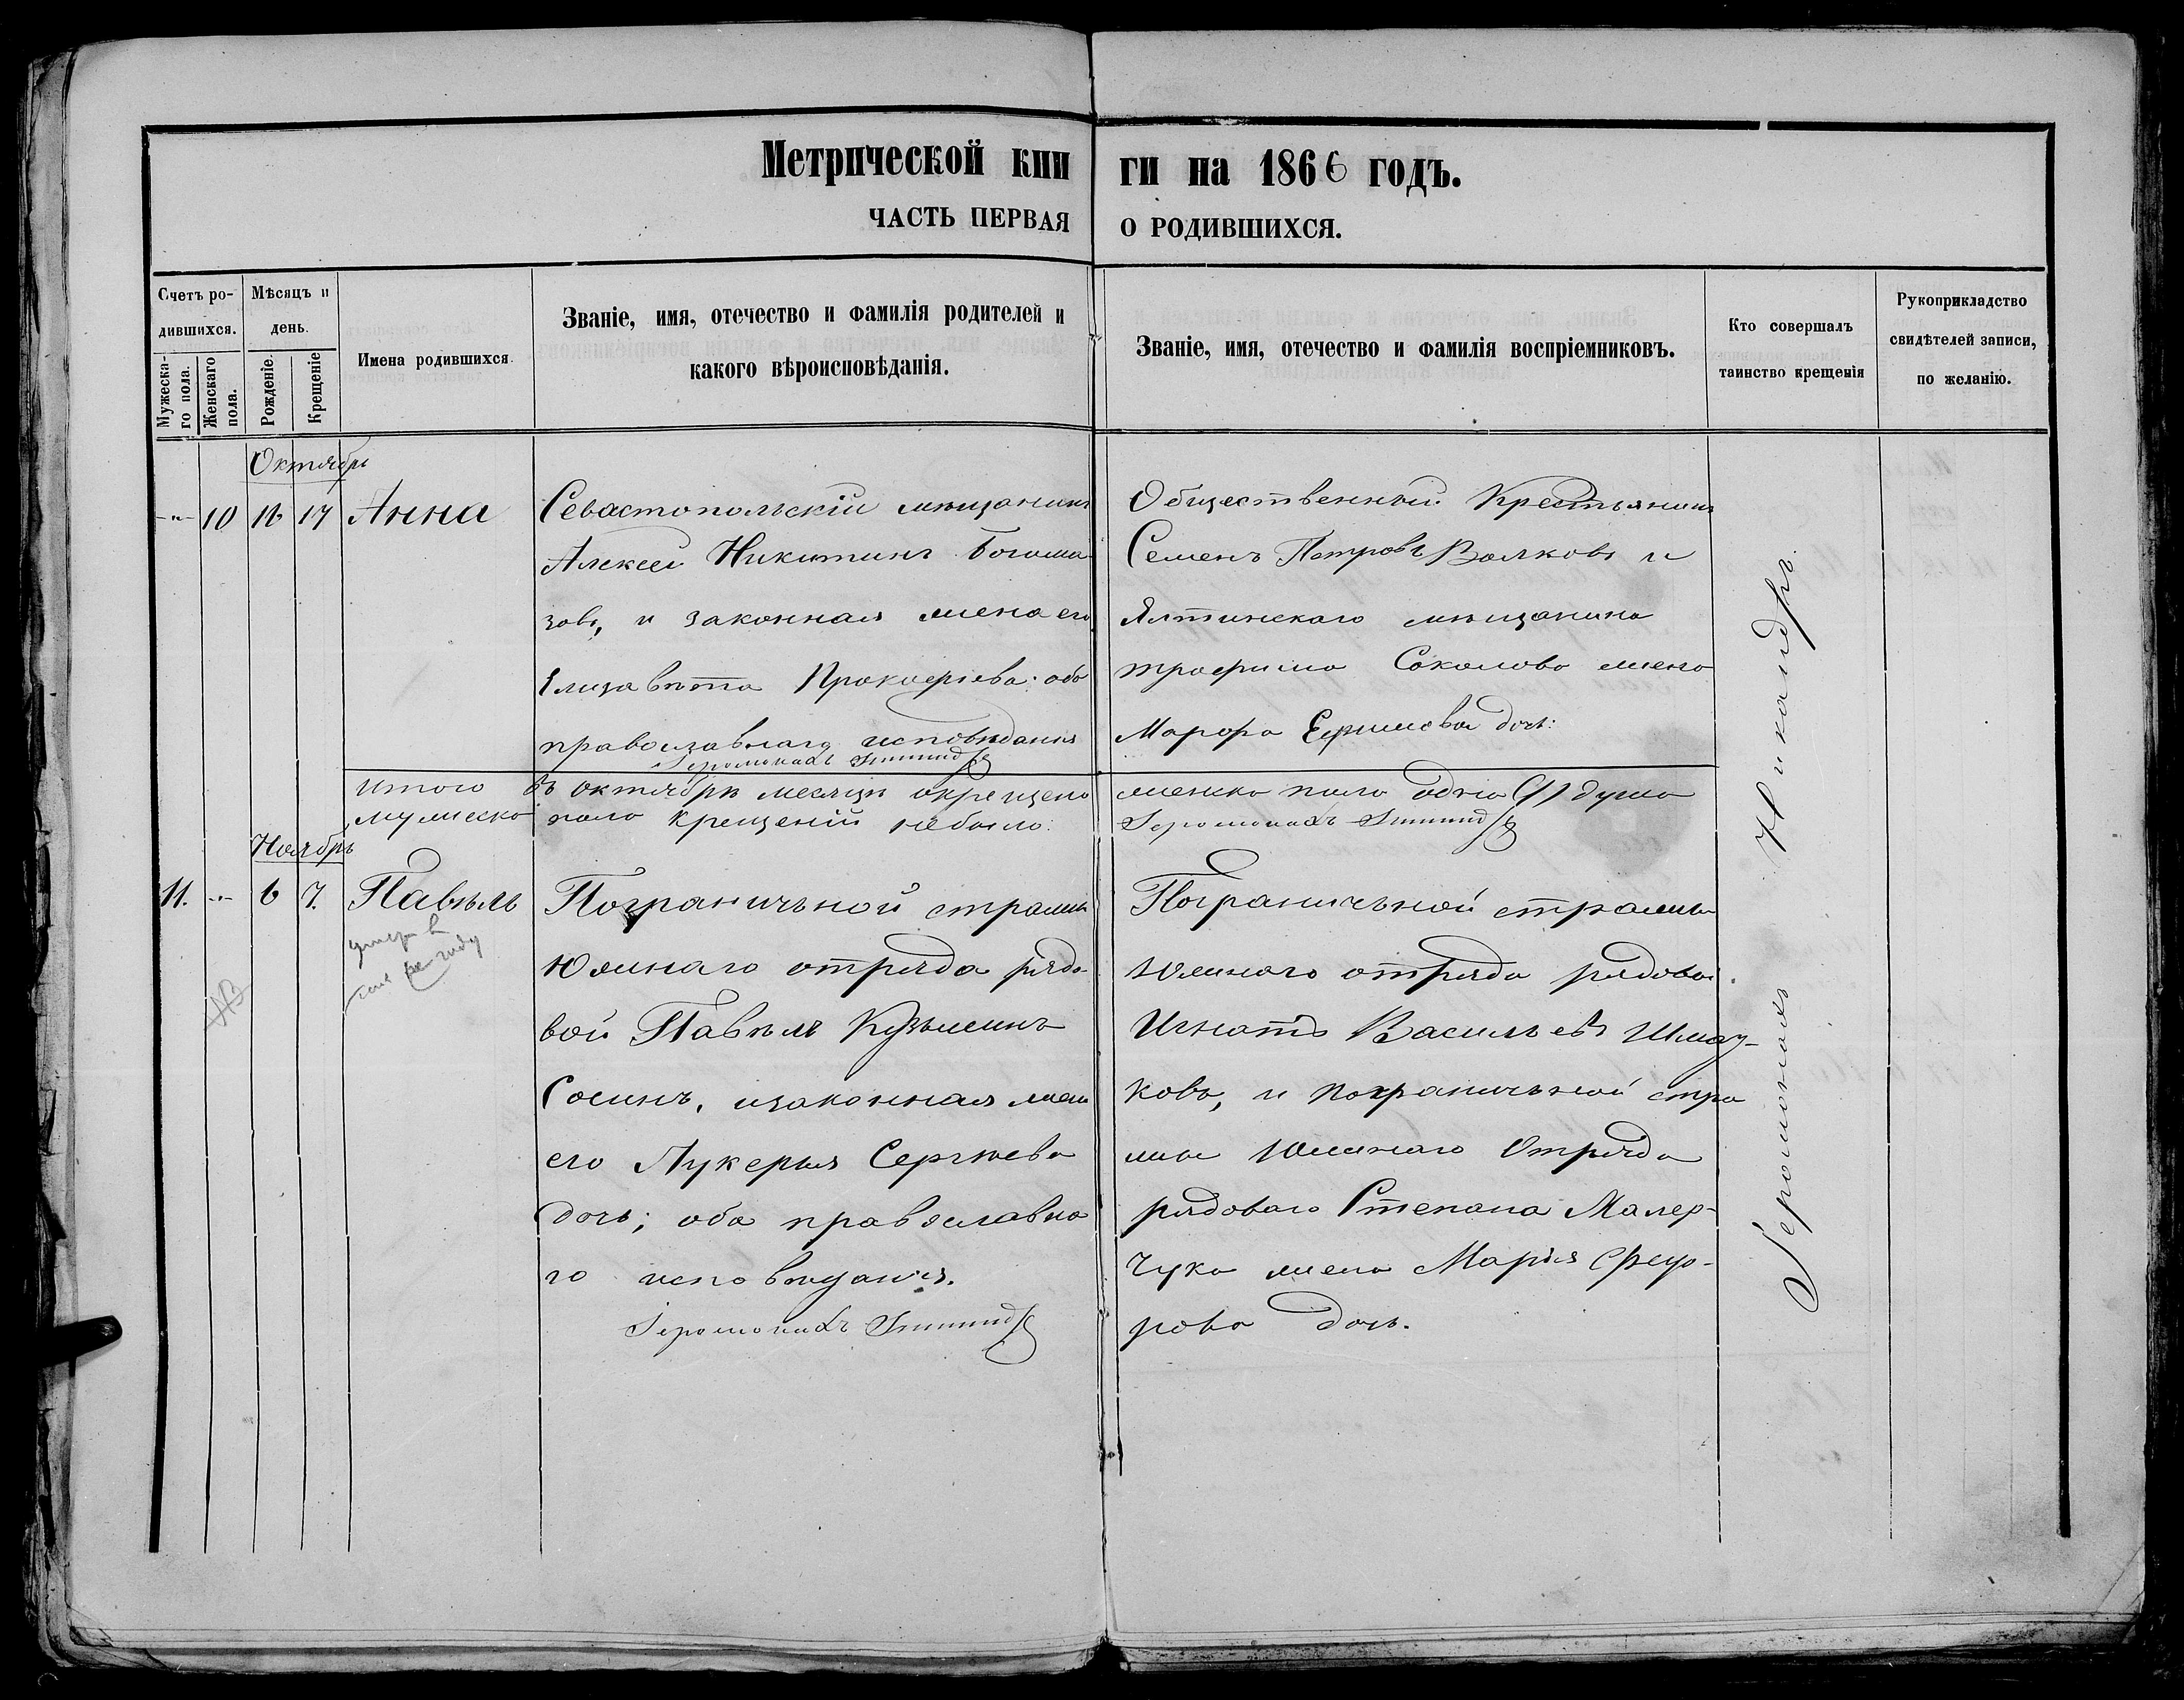 Метрической кни ги на 1866 годъ.
ЧАСТЬ ПЕРВАЯ О РОДИВШИХСЯ.
Счетъ ро-
дившихся.
Мужеска-
го пола.
Женскаго
пола.
Мѣсяцъ и
день.
Рожденіе.
Крещеніе
Имена родившихся.
Званіе, имя, отечество и фамилія родителей и
какого вѣроисповѣданія.
Званіе, имя, отечество и фамилія воспріемниковъ.
Кто совершалъ
таинство крещенія
Рукоприкладство
свидѣтелей записи,
по желанію.
Октябрь
-"- 10 16 17 Анна
Севастопольскій мѣщанинъ
Алексей Никитинъ Богома
зовъ, и законная жена его
Елизавѣта Прокофіева: оба
православнаго исповѣданія
Іеромонахъ
Общественный Крестьянинъ
Семенъ Петровъ Волковъ и
Ялтинскаго мѣщанина
трофима Соколова жена
Марфа Ефимова дочь:
Итого въ октябрѣ месяцѣ окрещено женска пола одна (1) душа
мужеска пола крещеній небыло:
Іеромонахъ
Ноябрь
11. -"- 6 7. Павѣлъ
умер в
году
Пограничьной стражи
Южнаго отряда рядо
вой Павѣлъ Кузьминъ
Сосинъ, изаконная жена
его Лукерья Сергѣева
дочь; оба православна
го исповѣданія.
Іеромонахъ
Пограничьной стражи
Южнаго отряда рядовой
Игнатъ Васильевъ Шмау-
ковъ, и пограничьной стра
жи Южнаго Отряда
рядоваго Степана Малер-
чука жена Марія Федо-
рова дочь.
Іеромонахъ Никандръ.